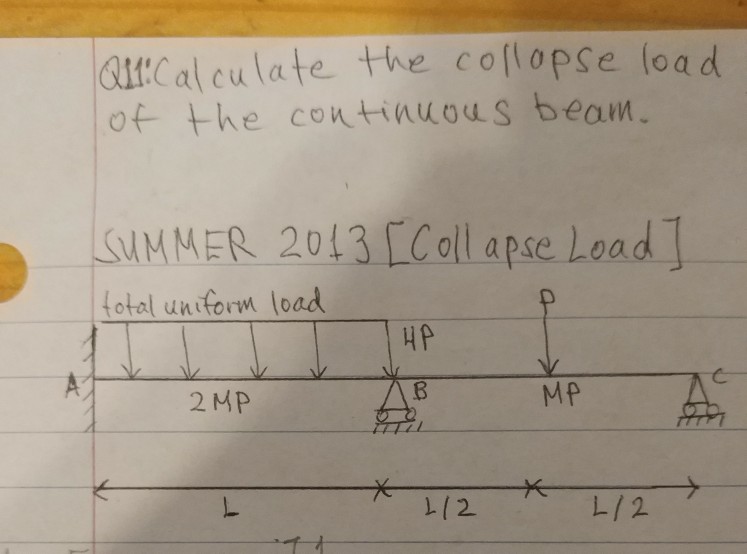 Q11:Calculate the collapse load
of the continuous beam.
SUMMER 2013 [Collapse Load]
total uniform load
P
4P
A
B
C
2MP
MP
L
L/2
L/2